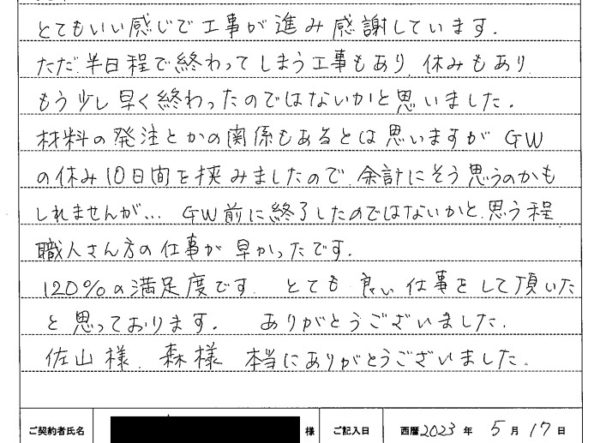 とてもいい感じで工事が進み感謝しています.
ただ.半日程で終わってしまう工事もあり.休みもあり
もう少し早く終わったのではないかと思いました.
材料の発注とかの関係もあるとは思いますが GW
の休み10日間を挟みましたので.余計にそう思うのかも
しれませんが... GW前に終了したのではないかと.思う程
職人さん方の仕事が早かったです.
120%の満足度です. とても 良い仕事をして頂いた
と思っております. ありがとうございました.
佐山様.森様 本当にありがとうございました.
ご契約者氏名 様 ご記入日 西暦2023年 5月17日